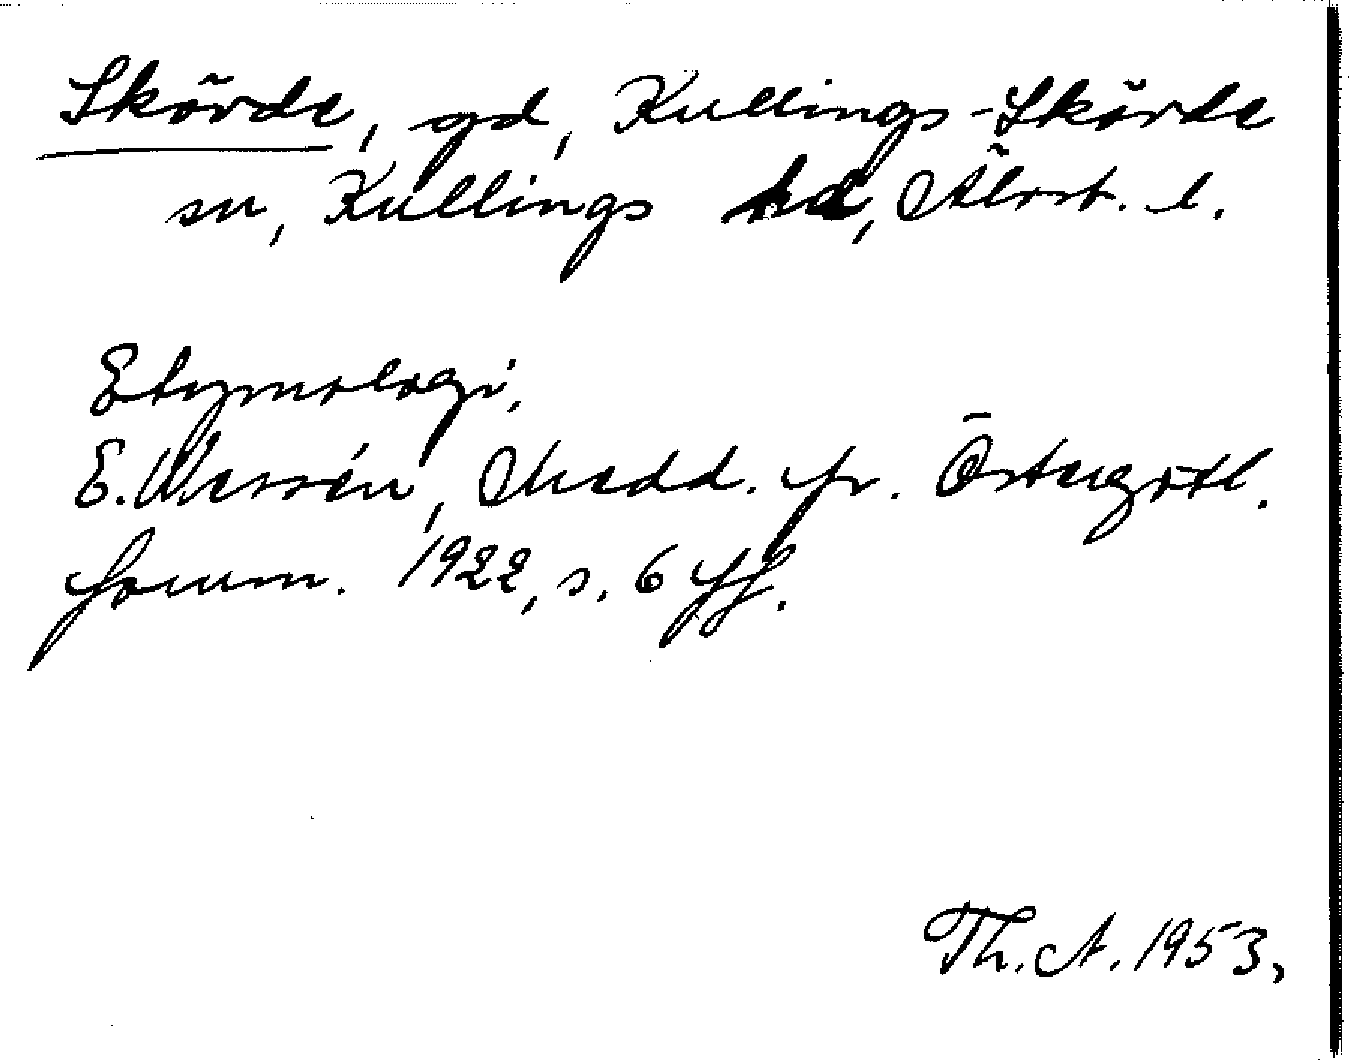 Skövde, gd, Kullings-Skövde
sn, Kullings hd, Älvsb. l.
Etymologi,
E. Wessén, Medd. fr. Östergötl.
fornm. 1922, s. 6 ff.
Th. A. 1953,